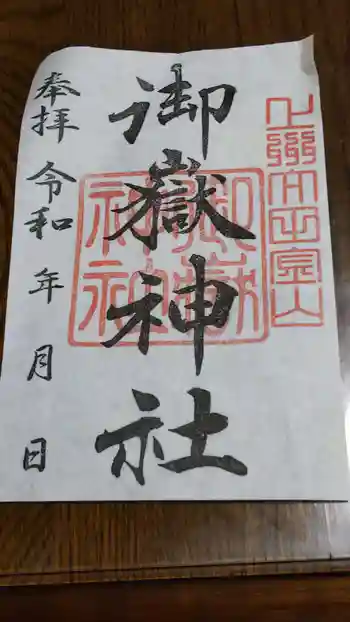 御嶽神社
御嶽神社
奉拝 令和 年 月 日